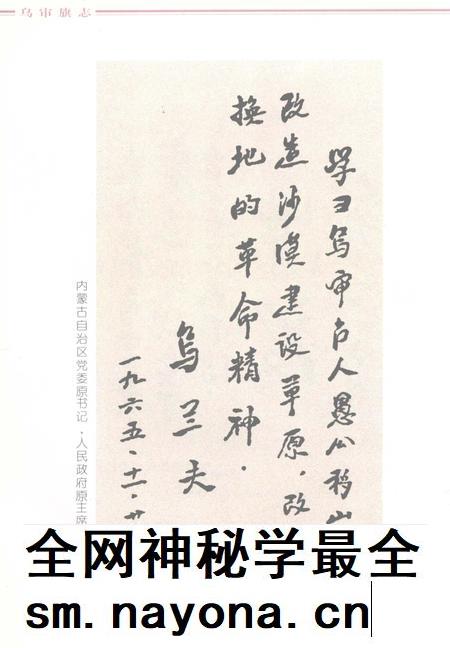 乌审旗志
学习乌审召人愚公移山
改造沙漠建设草原，改
换地的革命精神.
乌兰夫
一九六五·十一·廿
内蒙古自治区党委原书记、人民政府原主席
全网神秘学最全
sm.nayona.cn